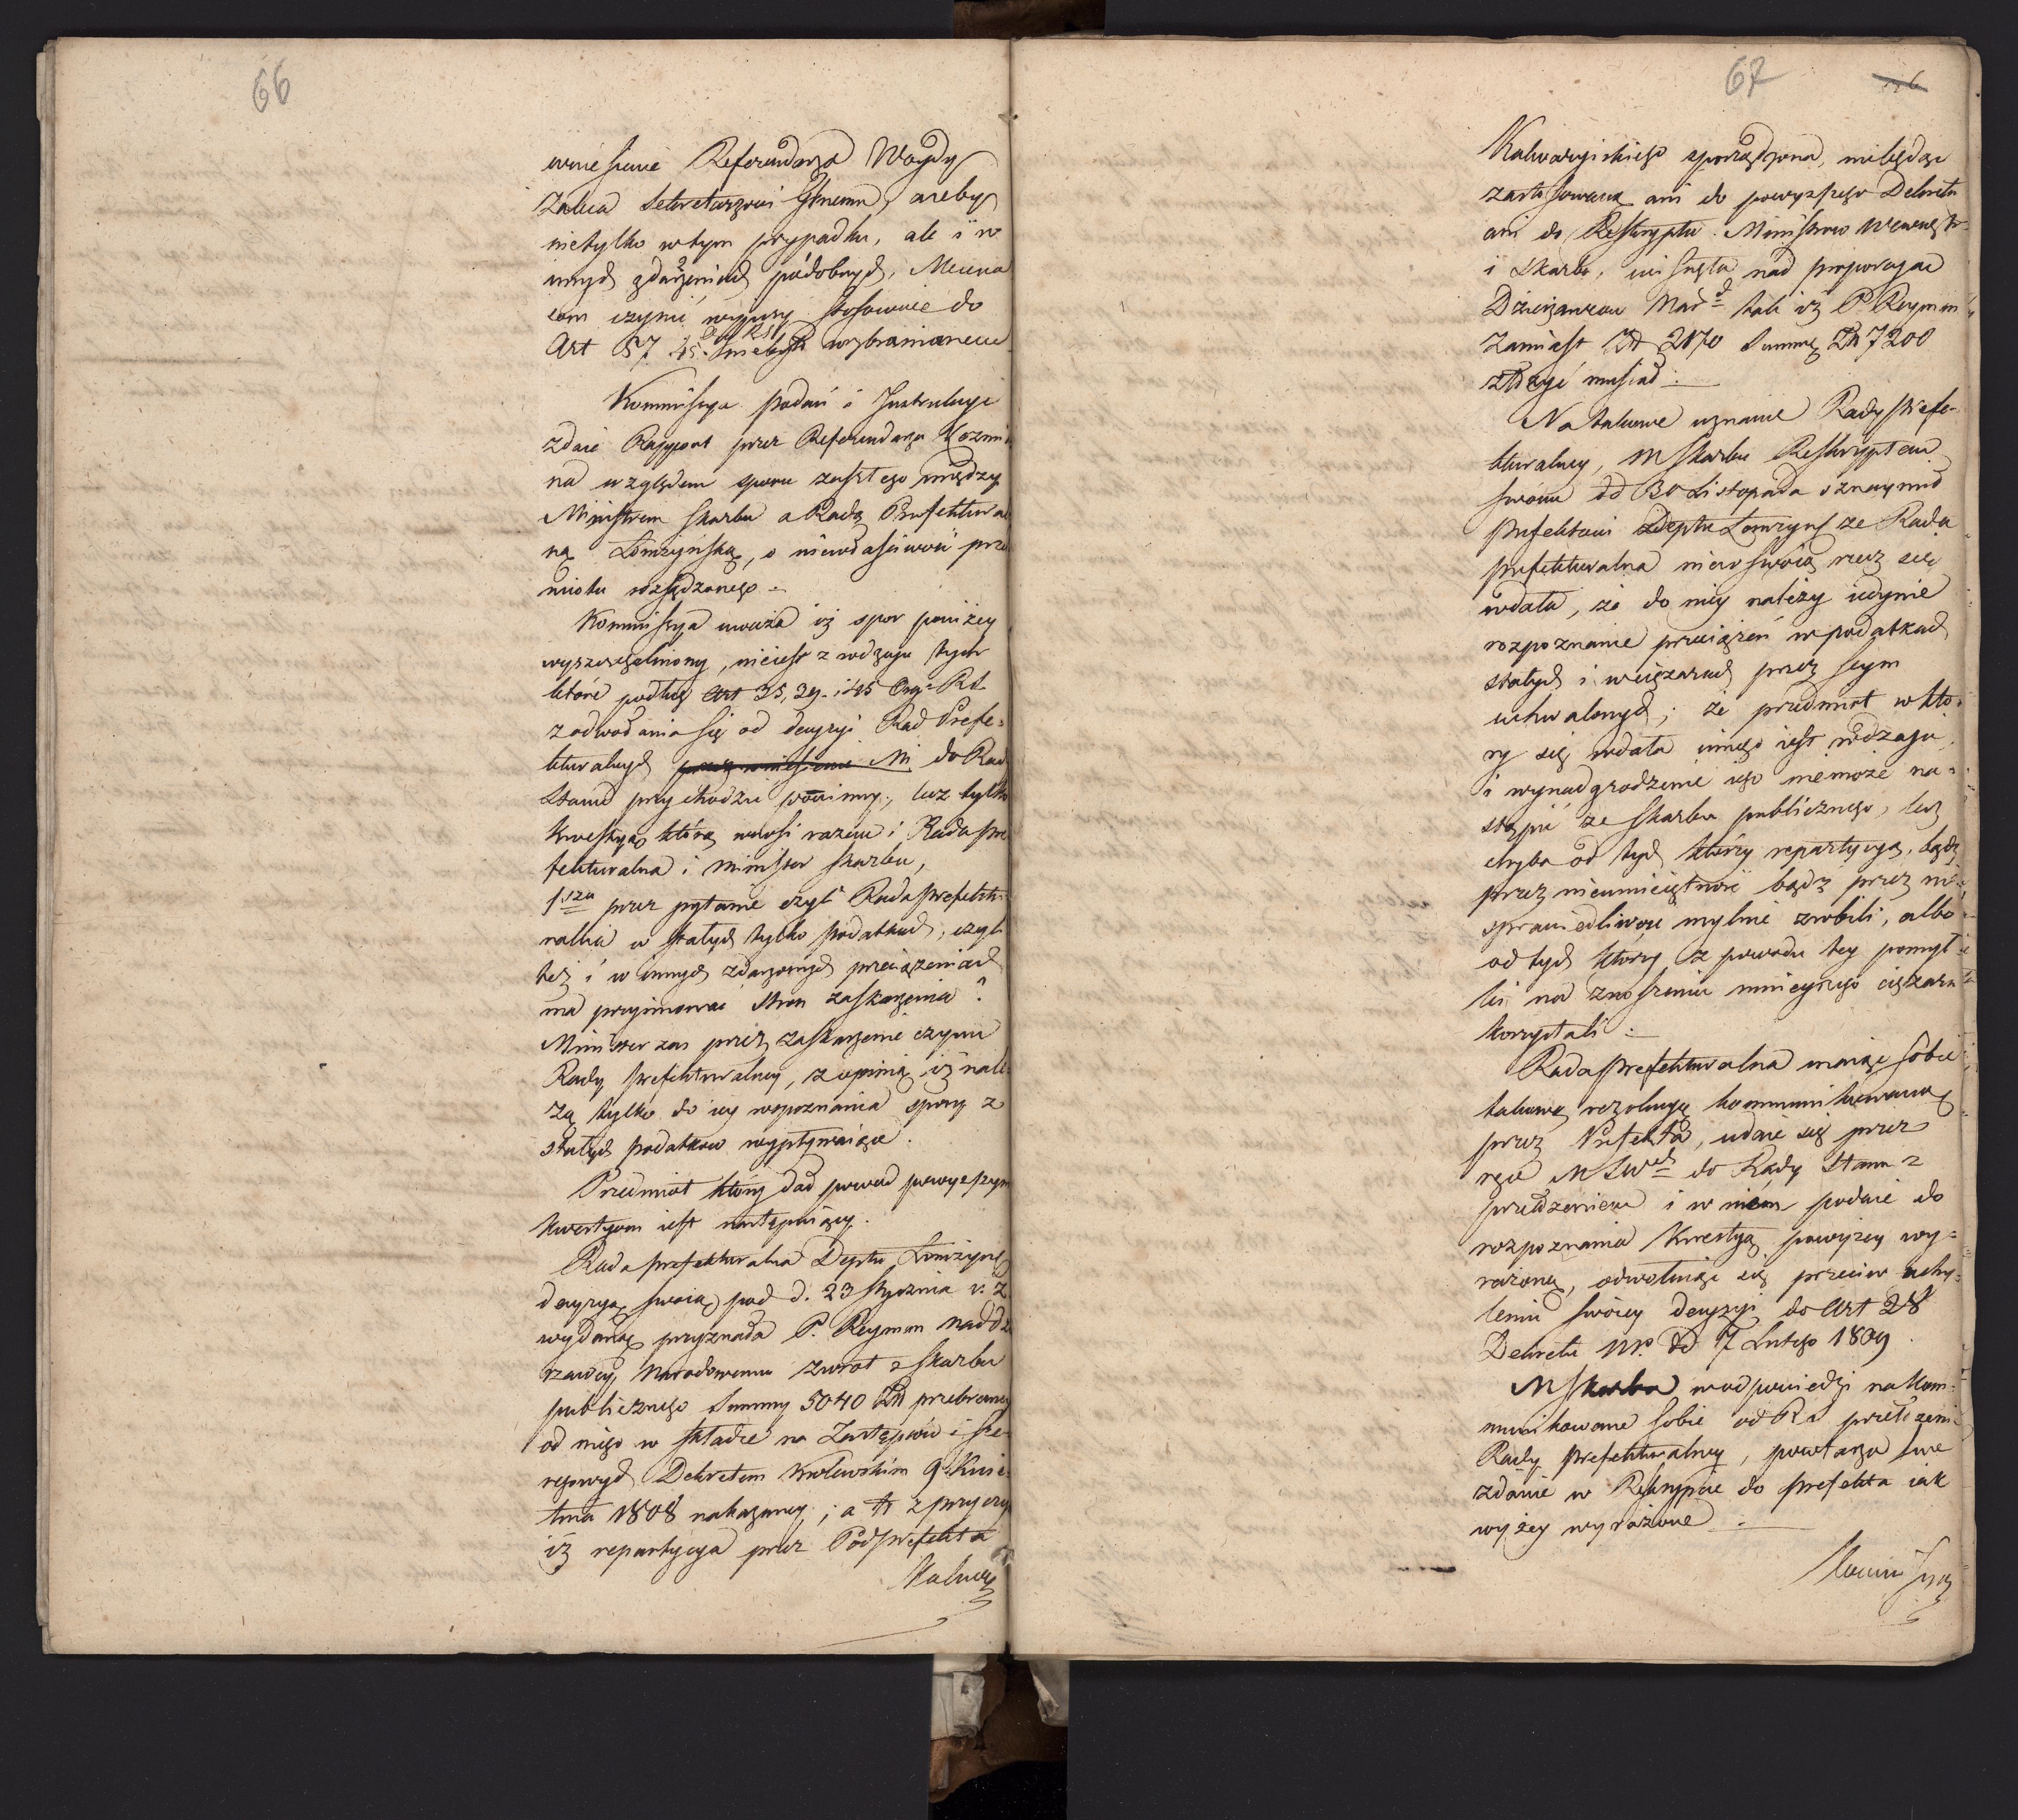 66
wniesienie Referendarza Woydy
zaleca Sekretarzowi Głnemu, ażeby
nietylko w tym przypadku, ale i w
innych zdarzeniach podobnych, Mecena
som czynić wypisy stosownie do
Art 57 45. wzbraniane
Kommissya podań i Instrukcyi
zdaie Rapport przez Referendarza Kozmi
na względem sporu zaszłego między
Ministrem Skarbu a Radą Prefektural
ną Łomżyńską, o niewłaściwość prze
miotu rozsądzonego.
Kommissya uważa iż spor poniżey
wyszczegulniony, nieiest z rodzaju tych
które podług Art 25, 29. i 45 Org. RS.
z odwołania się od decyzyi Rad Prefe-
kturalnych do Rady
Stanu przychodzić powinny, lecz tylko
kwestyą którą wnosi razem i Rada Pre
fekturalna i Minister Skarbu,
1sza przez pytanie czyli Rada Prefektu-
ralna w stałych tylko podatkach, czyli
też i w innych zdarzonych przeciążeniach
ma przyimować Stron zaskarżenia?
Minister zaś przez zaskarżenie czynu
Rady Prefekturalney, z opinią iż nale-
żą tylko do iey rozpoznania spory z
stałych podatków wypływaiące.
Przedmiot który dał powod powyższym
kwestyom iest następuiący.
Rada Prefekturalna Deptu Łomżyńs
decyzyą swoią pod d. 23 Stycznia r. z.
wydaną przyznała P. Reyman Naddzie
rzawcy Narodowemu zwrot z Skarbu
publicznego Summy 5040 Zł przebraney
od niego w składce na Zastępców i Sze-
regowych Dekretem Krolewskim 9 Kwie-
tnia 1808 nakazaney; a to z przyczy
iż repartycya przez Podprefekta
Kalwar
67
Kalwaryiskiego sporządzona, niebędąc
zastosowaną ani do powyższego Dekretu
ani do Reskryptu Ministrow Wewnętr-
i Skarbu, uciśnęła nad proporcyą
Dzierżawcow Nard tak iż P. Reyman
zamiast Zł 2170 Summę Zł 7200
złożyć musiał.
Na takowe uznanie Rady Prefe-
kturalney, M Skarbu Reskryptem
swoim dd 30 Listopada oznaymił
Prefektowi Deptu Łomżyńs że Rada
Prefekturalna nie w swoią rzecz się
wdała, że do niey należy iedynie
rozpoznanie przeciążeń w podatkach
stałych i w ciężarach przez Seym
uchwalonych; że przedmiot w kto-
ry się wdała innego iest rodzaju,
i wynadgrodzenie iego niemoże na-
stąpić ze Skarbu publicznego, lecz
chyba od tych którzy repartycyą, bądź
przez nieumieiętność bądź przez nie-
sprawiedliwość mylnie zrobili, albo
od tych którzy z powodu tey pomył
ki na znoszeniu mnieyszego ciężaru
korzystali.
Rada Prefekturalna maiąc sobie
takową rezolucyą kommunikowaną
przez Prefekta, udaie się przez
ręce M SWch do Rady Stanu z
przełożeniem i w niem podaie do
rozpoznania kwestyą powyżey wy-
rażoną, odwołuiąc się przeciw uchy-
leniu swoiey decyzyi do Art 28
Dekretu NP. dd 7 Lutego 1809.
M Skarbu w odpowiedzi na kom-
munikowane sobie od RS przełożenie
Rady Prefekturalney, powtarza swe
zdanie w Reskrypcie do Prefekta iak
wyżey wyrażone.
Kommissya